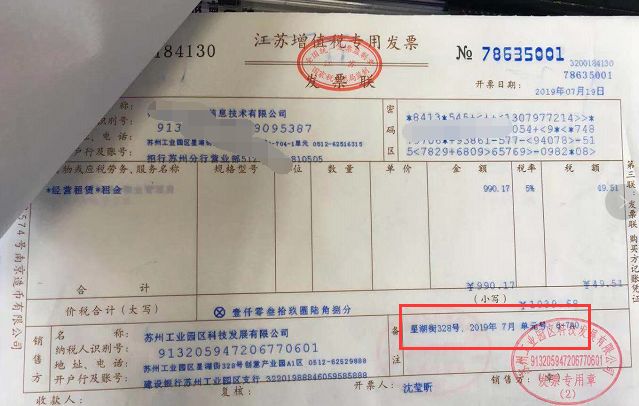 184130
江苏增值税专用发票
№ 78635001
3200184130
78635001
发票联
开票日期：
2019年07月19日
名称：
信息技术有限公司
识别号：
913
9095387
电话：
苏州工业园区星湖街
-704-1单元 0512-62516315
户行及账号：
招行苏州分行营业部512
810505
密码区
*8413*546+<+<+1307977214>>*
054+<9*<*748
+93861-577-<94078>-51
5<7829+6809>65769>-0982*08>
物或应税劳务、服务名称
规格型号
单位
数量
单价
金额
税率
税额
*经营租赁*租金
990.17
5%
49.51
合计
￥990.17
￥49.51
价税合计（大写）
壹仟零叁拾玖圆陆角捌分
（小写）
￥1039.68
销售方
名称：
苏州工业园区科技发展有限公司
纳税人识别号：
913205947206770601
地址、电话：
苏州工业园区星湖街328号创意产业园A1区 0512-62529888
开户行及账号：
建设银行苏州工业园区支行 32201988846059585888
备注
星湖街328号，2019年 7月 单元号：
收款人：
复核：
开票人：
沈莹昕
销售方：
苏州工业园区科技发展有限公司
913205947206770601
发票专用章
(2)
第三联：发票联 购买方记账凭证
574号南京造币有限公司